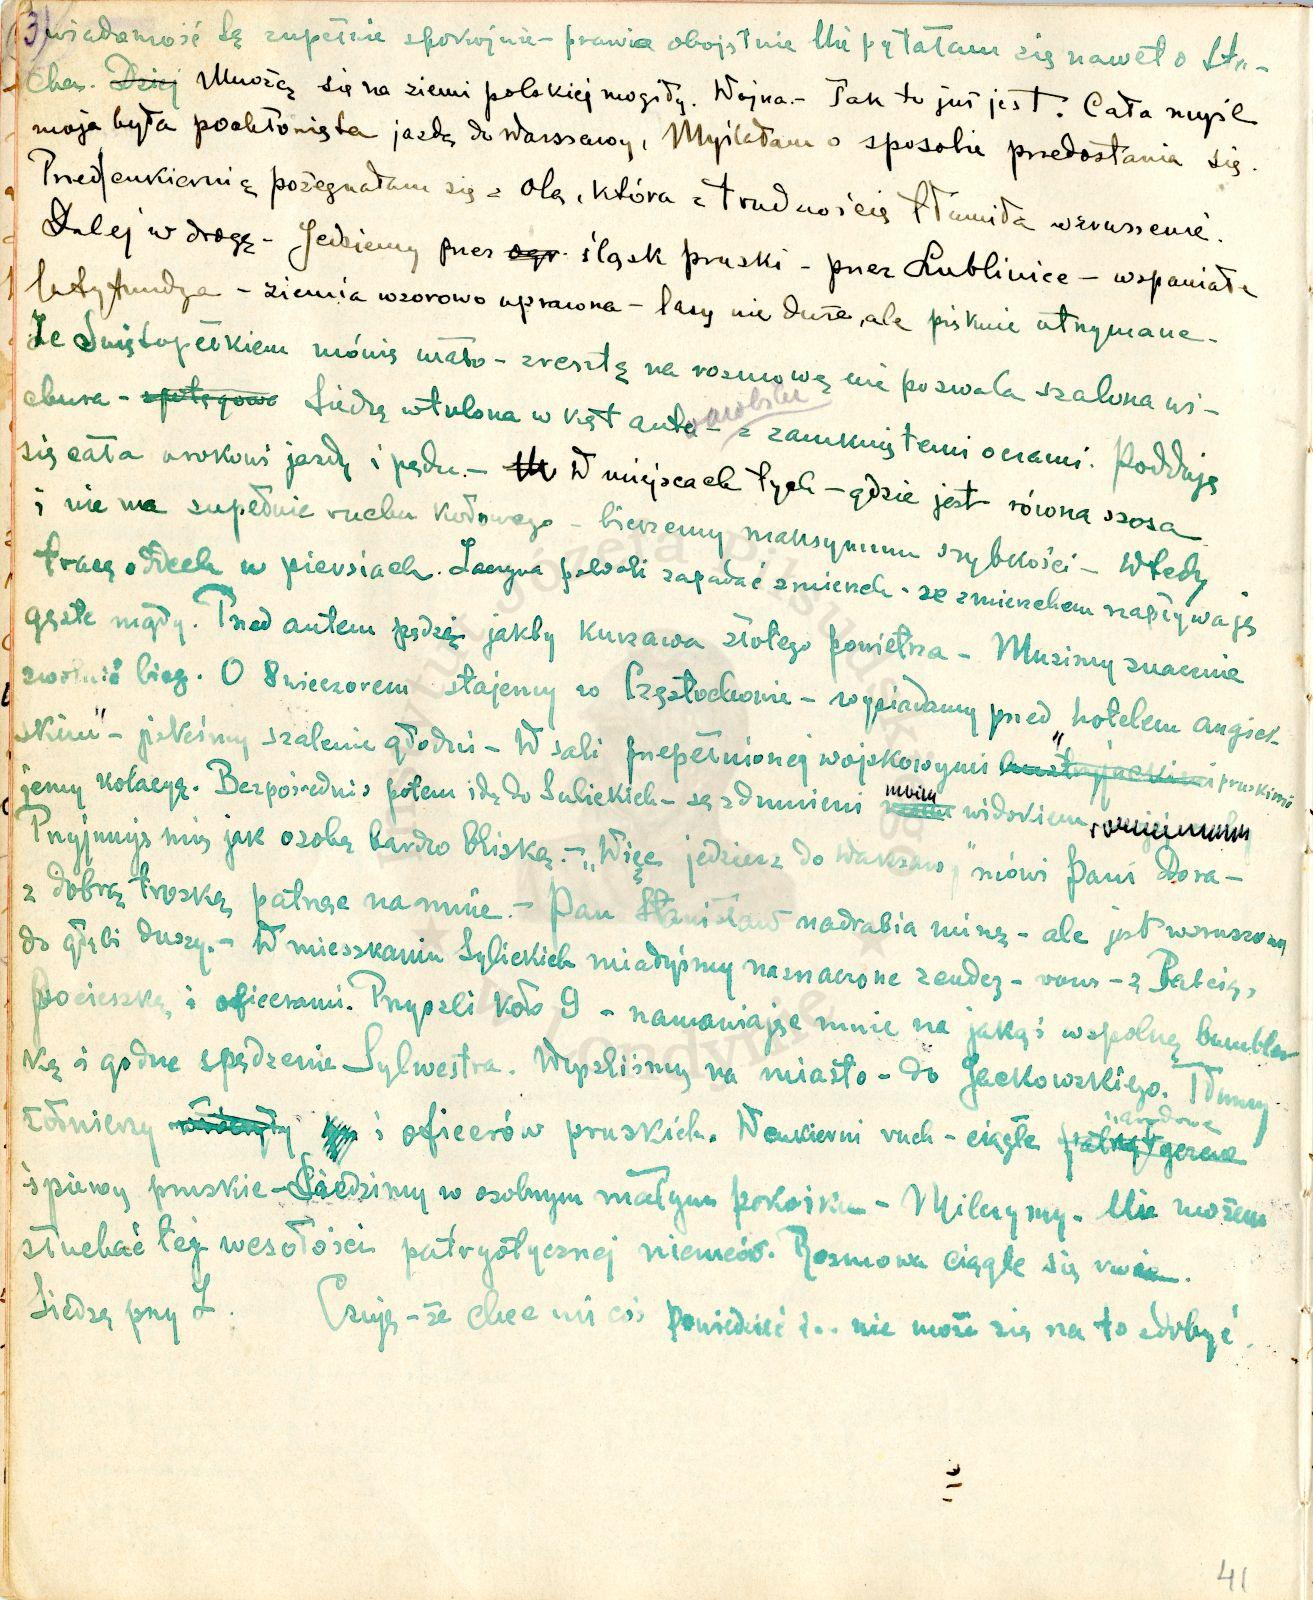 3) wiadomość tą zupełnie spokojnie – prawie obojętnie Nie pytałam się nawet o Sta-
cha. Dziej Mnożą się na ziemi polskiej mogiły. Wojna. – Tak to już jest. Cała myśl
moja była pochłonięta jazdą do Warszawy, Myślałam o sposobie przedostania się.
Przed cukiernią pożegnałam się z Olą, która z trudnością tłumiła wzruszenie.
Dalej w drogę – Jedziemy przez ogr. śląsk pruski – przez Lublinice – wspaniałe
latyfundza – ziemia wzorowo uprawna – lasy nie duże, ale pięknie utrzymane –
Ze Świętopełkiem mówię mało – zresztą na rozmowę nie pozwala szalona wi-
chura – spotęgowa Siedzę wtulona w kąt auto – z zamkniętemi oczami. Poddaję
się cała urokowi jazdy i pędu. – W miejscach tych – gdzie jest równa szosa
i nie ma zupełnie ruchu kołowego – bierzemy maksymum szybkości – Wtedy
tracę oddech w piersiach. Zaczyna powoli zapadać zmierzch – ze zmierzchem napływają
gęste mgły. Przed autem pędzi jakby kurzawa złotego powietrza – Musimy znacznie
zwolnić bieg. O 8 wieczorem stajemy w Częstochowie – wysiadamy przed „hotelem angiel-
skim" – jesteśmy szalenie głodni – W sali przepełnionej wojskowymi austryjackimi i pruskimi
jemy kolacyą. Bezpośrednio potem idę do Sulickich – są zdumieni moim widokiem
Przyjmują mię jak osobę bardzo bliską. – „Więc jedziesz do Warszawy" mówi Pani Dora –
z dobrą troską patrząc na mnie. – Pan Stanisław nadrabia miną – ale jest wzruszony
do głębi duszy. – W mieszkaniu Sulickich miałyśmy naznaczone rendez – vous – z
i oficerami. Przyszli koło 9 – namawiając mnie na jakąś wspólną bumbler
kę i godne spędzenie Sylwestra. Wyszliśmy na miasto – do Jackowskiego. Tłumy
żołnierzy i oficerów pruskich. W cukierni ruch – ciągłe narodowe
śpiewy pruskie – Siedzimy w osobnym małym pokoiku – Milczymy. Nie możem
słuchać tej wesołości patryotycznej niemców. Rozmowa ciągle się rwie.
Siedzę przy Z. Czuję – że chce mi coś powiedzieć i... nie może się na to zdobyć.
41